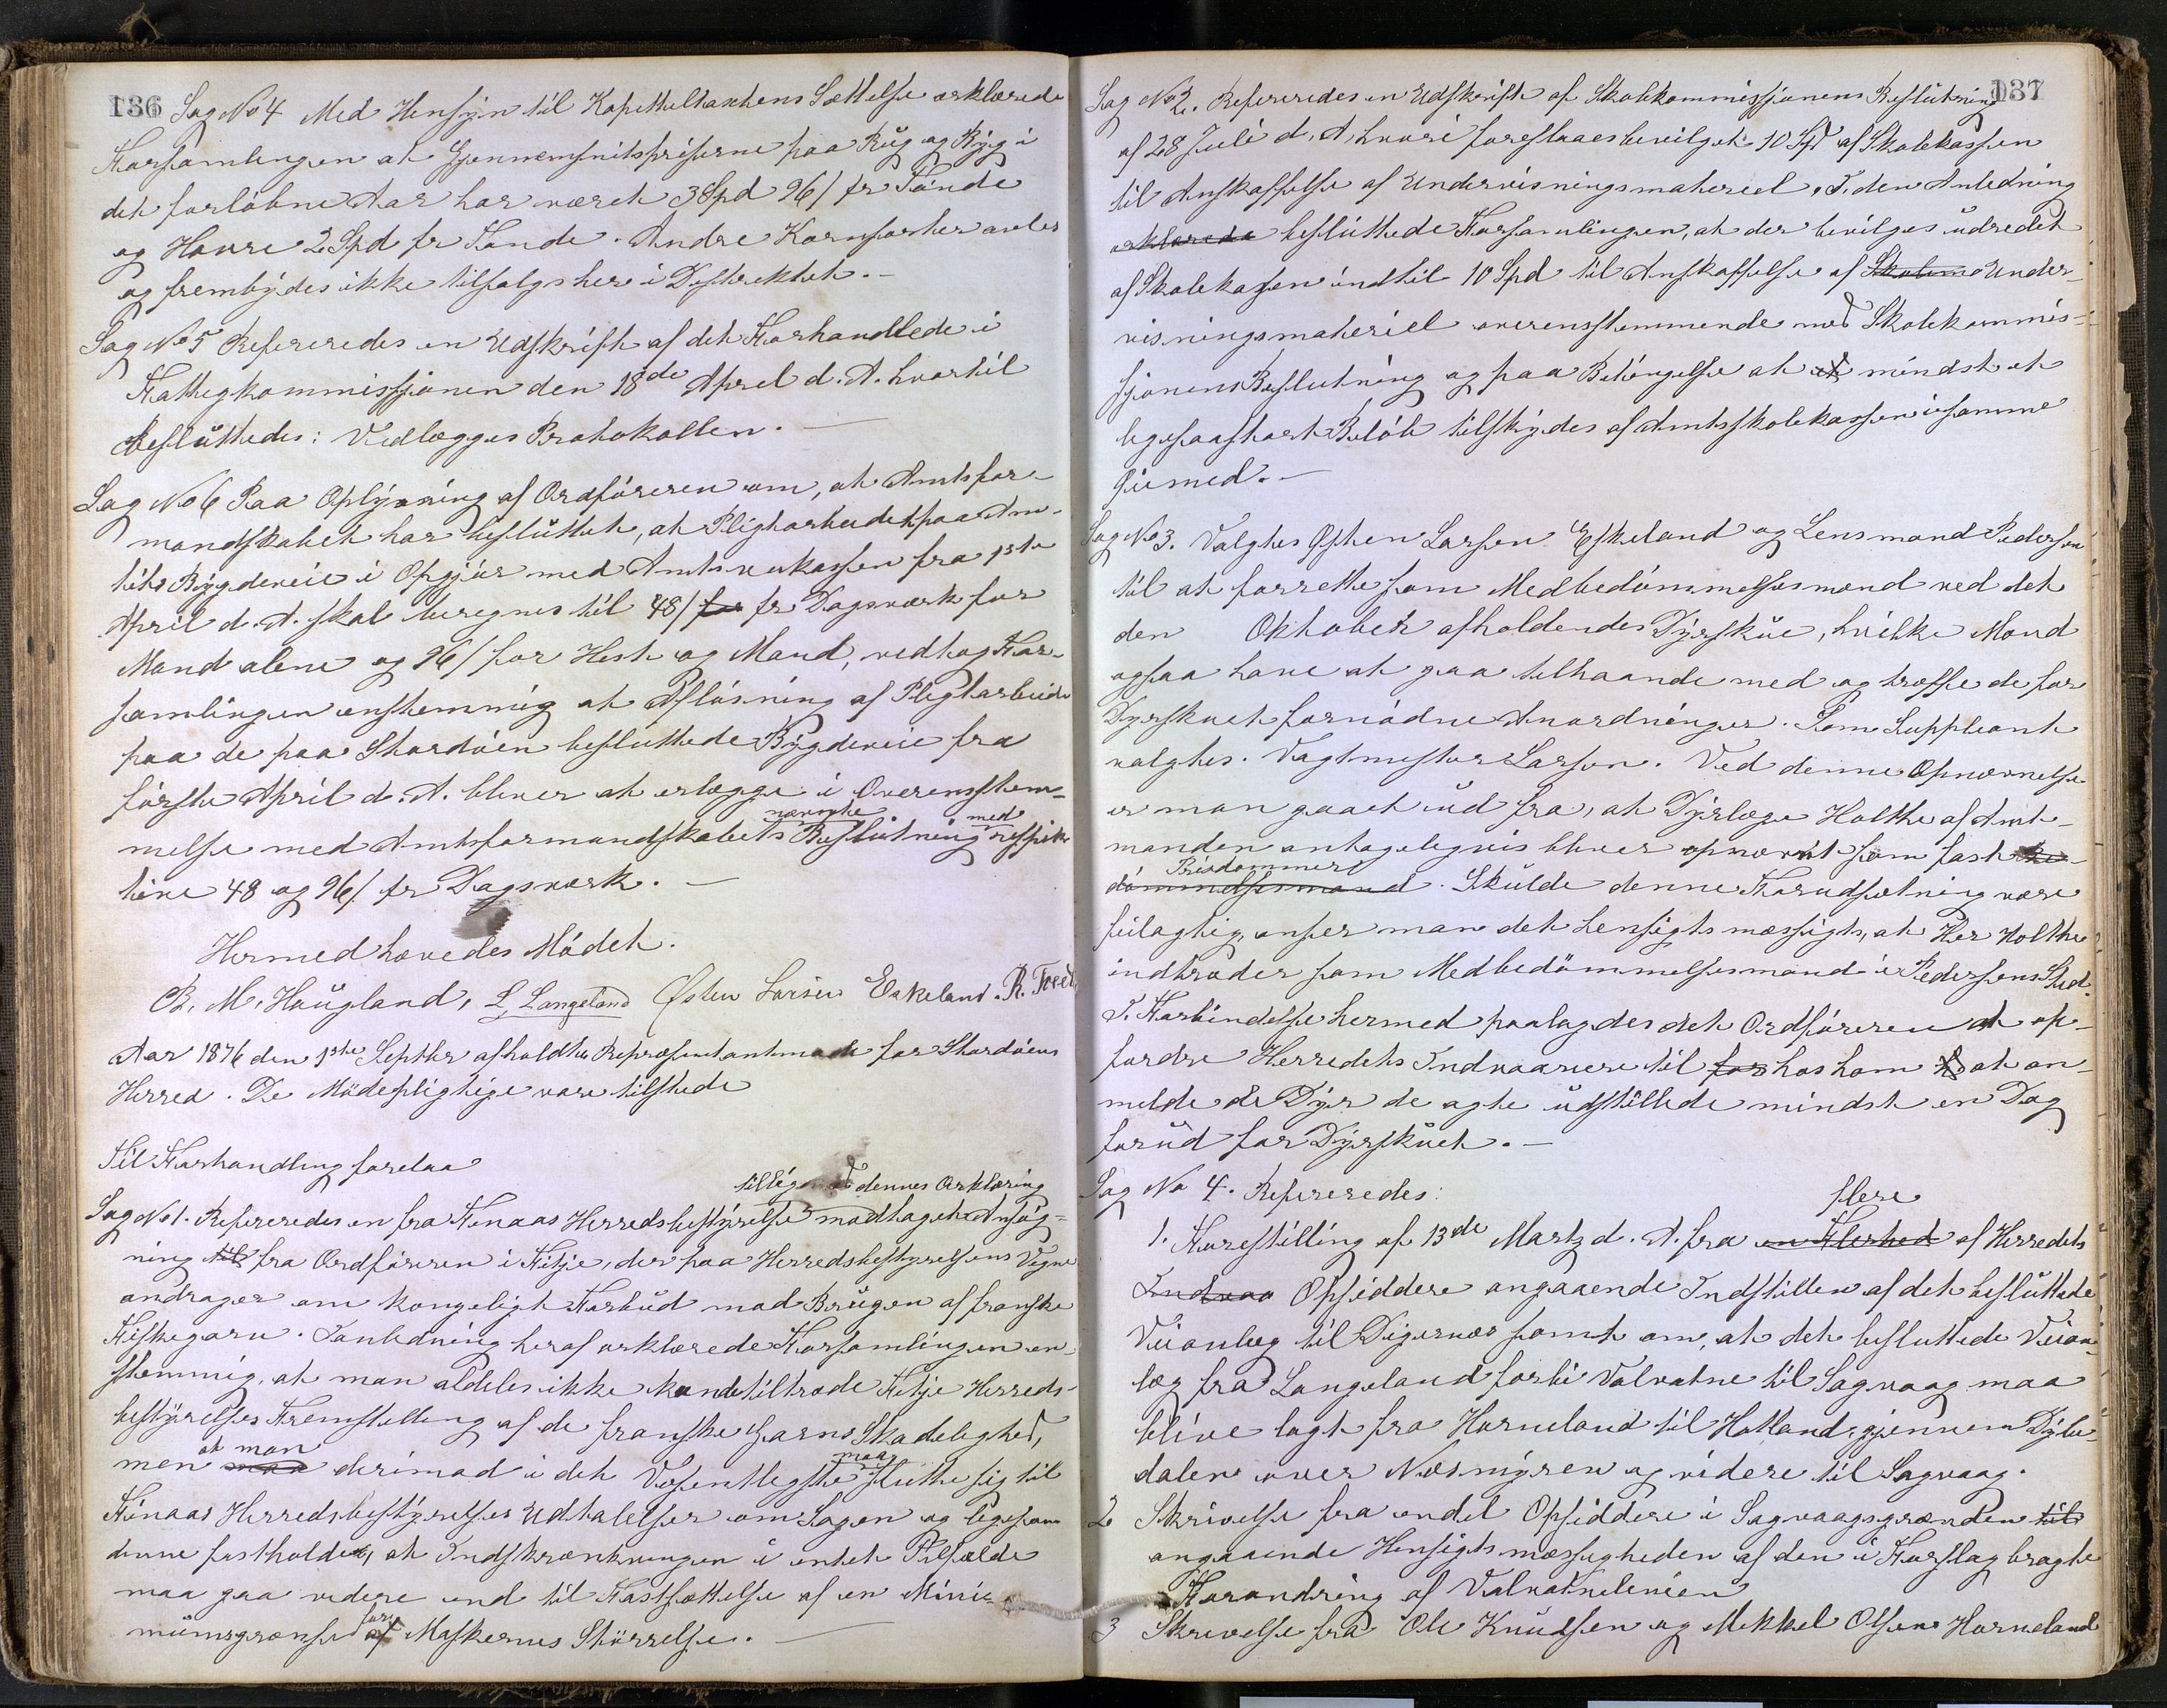 136
Sag No 4 Med Hensyn til Kapitteltaxtens Sættelse erklærede
Forsamlingen at Gjennemsnitspriserne paa Rug og Byg i
det forløbne Aar har været 3 Spd 96/ pr Tønde
og Havre 2 Spd pr Tønde. Andre Kornsorter avles
og frembydes ikke tilsalgs her i Distriktet. -
Sag No 5 Refereredes en Udskrift af det Forhandlede i
Fattigkommissionen den 18de April d. A. hvortil
Besluttedes: Vedlægges Protokollen. -
Sag No 6 Paa Oplysning af Ordføreren om, at Amtsfor-
mandskabet har besluttet, at Pligtarbeidet paa Am-
tets Bygdeveie i Opgjør med Amtsveikassen fra 1ste
April d. A. skal beregnes til 48/ for pr Dagsværk for
Mand alene og 96/ for Hest og Mand, vedtog For-
samlingen enstemmig at Afløsning af Pligtarbeide
paa de paa Stordøen besluttede Bygdeveie fra
første April d. A. bliver at erlægge i Overensstem-
nævnte med
melse med Amtsformandskabets Beslutning respek
tive 48 og 96/ pr Dagsværk. -
Hermed hævedes Mødet.
B. M. Haugland, L Langeland Østen Larsen Eskeland. R. Tveit
Aar 1876 den 1ste Septbr afholdtes Repræsentantmøde for Stordøens
Herred. De Mødepligtige vare tilstede
Til Forhandling forelaa
tilligemed dennes Erklæring
Sag No 1. Refereredes en fra Finaas Herredsbestyrelse modtaget Ansøg-
ning til fra Ordføreren i Fitje, der paa Herredsbestyrelsens Vegne
andrager om kongeligt Forbud mod Brugen af franske
Fiskegarn. I anledning heraf erklærede Forsamlingen en-
stemmig, at man aldeles ikke kunde tiltræde Fitje Herreds-
bestyrelses Fremstilling af de franske Garns Skadelighed,
at man maa
men maa derimod i det Væsentligste slutte sig til
Finaas Herredsbestyrelses Udtalelser om Sagen og ligesom
denne fastholder, at Indskrænkningen i intet Tilfælde
maa gaa videre end til Fastsættelse af en Mini-
for
mumsgrænse af Maskernes Størrelse. -
137
Sag No 2. Refereredes en Udskrift af Skolekommissjonens Beslutning
af 28 Juli d. A, hvori foreslaaes bevilget 10 Spd af Skolekassen
til Anskaffelse af Undervisningsmateriel. I den Anledning
erklærede besluttede Forsamlingen, at der bevilges udredet
af Skolekassen indtil 10 Spd til Anskaffelse af Skolem Under-
visningsmateriel overensstemmende med Skolekommis-
sjonens Beslutning og paa Betingelse at et mindst et
ligesaastort Beløb tilskydes af Amtsskolekassen i samme
Øiemed. -
Sag No 3. Valgtes Østen Larsen Eskeland og Lensmand Pedersen
til at forrette som Medbedømmelsesmænd ved det
den Oktober afholdendes Dyrskue, hvilke Mænd
ogsaa have at gaa tilhaande med og træffe de for
Dyrskuet fornødne Anordninger. Som Suppleant
valgtes. Vagtmester Larsen. Ved denne Opnævnelse
er man gaaet ud fra, at Dyrlæge Holthe af Amt-
manden antageligvis bliver opnævnt som fast Be-
Prisdommer
dømmelsesmand. Skulde denne Forudsætning være
feilagtig, anser man det hensigtsmæssigst, at Her Holthe
indtræder som Medbedømmelsesmand i Pedersens Sted.
I Forbindelse hermed paalagdes det Ordføreren at op-
fordre Herredets Indvaanere til for hos ham at an-
melde de Dyr de agte udstillede mindst en Dag
forud for Dyrskuet. -
Sag No 4. Refereredes:
flere
1. Forestilling af 13de Martz d. A. fra en Flerhed af Herredets
Indvaa Opsiddere angaaende Indstillen af det besluttede
Veianlæg til Digernæs samt om, at det besluttede Veian-
læg fra Langeland forbi Valvatne til Sagvaag maa
blive lagt fra Horneland til Hatland gjennem Dybe-
dalen over Næsmyren og videre til Sagvaag.
2 Skrivelse fra endel Opsiddere i Sagvaagsgrænden til
angaaende Hensigtsmæssigheden af den i Forslag bragte
Forandring af Valvatnelinien
3 Skrivelse fra Ole Knudsen og Mikkel Olsen Horneland